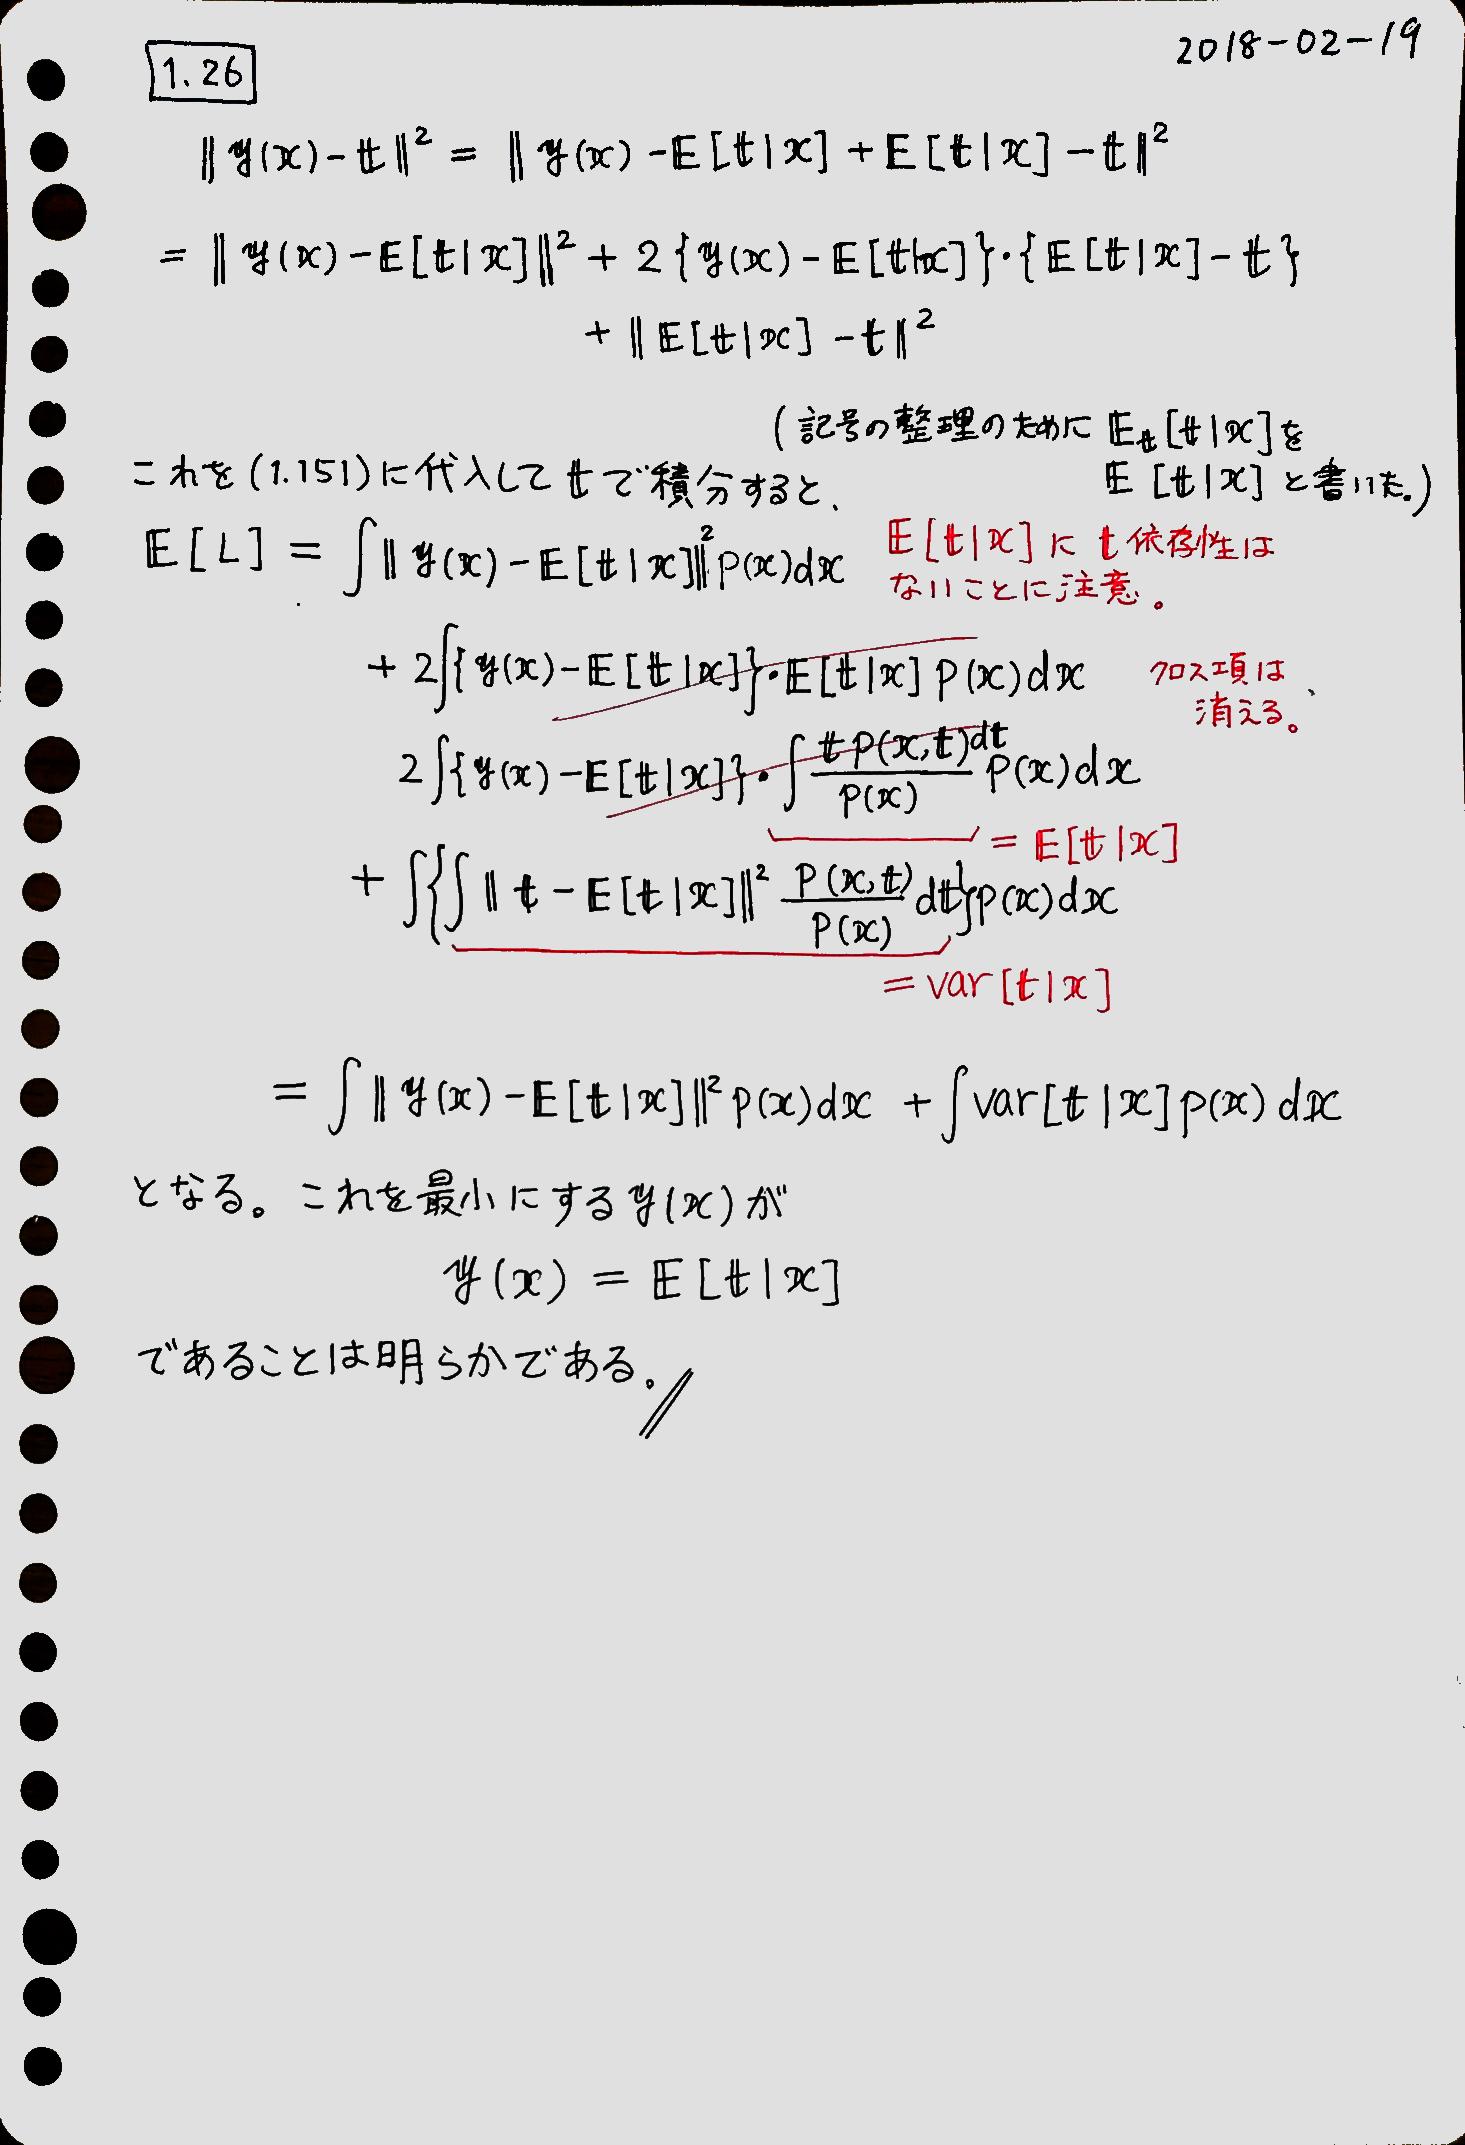 2018-02-19
1.26
‖y(x)-t‖² = ‖y(x)-E[t|x]+E[t|x]-t‖²
= ‖y(x)-E[t|x]‖² + 2{y(x)-E[t|x]}・{E[t|x]-t}
+ ‖E[t|x]-t‖²
(記号の整理のために E_t[t|x]を
E[t|x]と書いた。)
これを(1.151)に代入してtで積分すると、
E[L] = ∫‖y(x)-E[t|x]‖²p(x)dx
E[t|x]にt依存性は
ないことに注意。
+ 2∫{y(x)-E[t|x]}・E[t|x]p(x)dx
クロス項は
消える。
2∫{y(x)-E[t|x]}・∫ t p(x,t)dt / p(x) p(x)dx
= E[t|x]
+ ∫{∫‖t-E[t|x]‖² p(x,t)/p(x) dt}p(x)dx
= var[t|x]
= ∫‖y(x)-E[t|x]‖²p(x)dx + ∫var[t|x]p(x)dx
となる。これを最小にするy(x)が
y(x) = E[t|x]
であることは明らかである。//